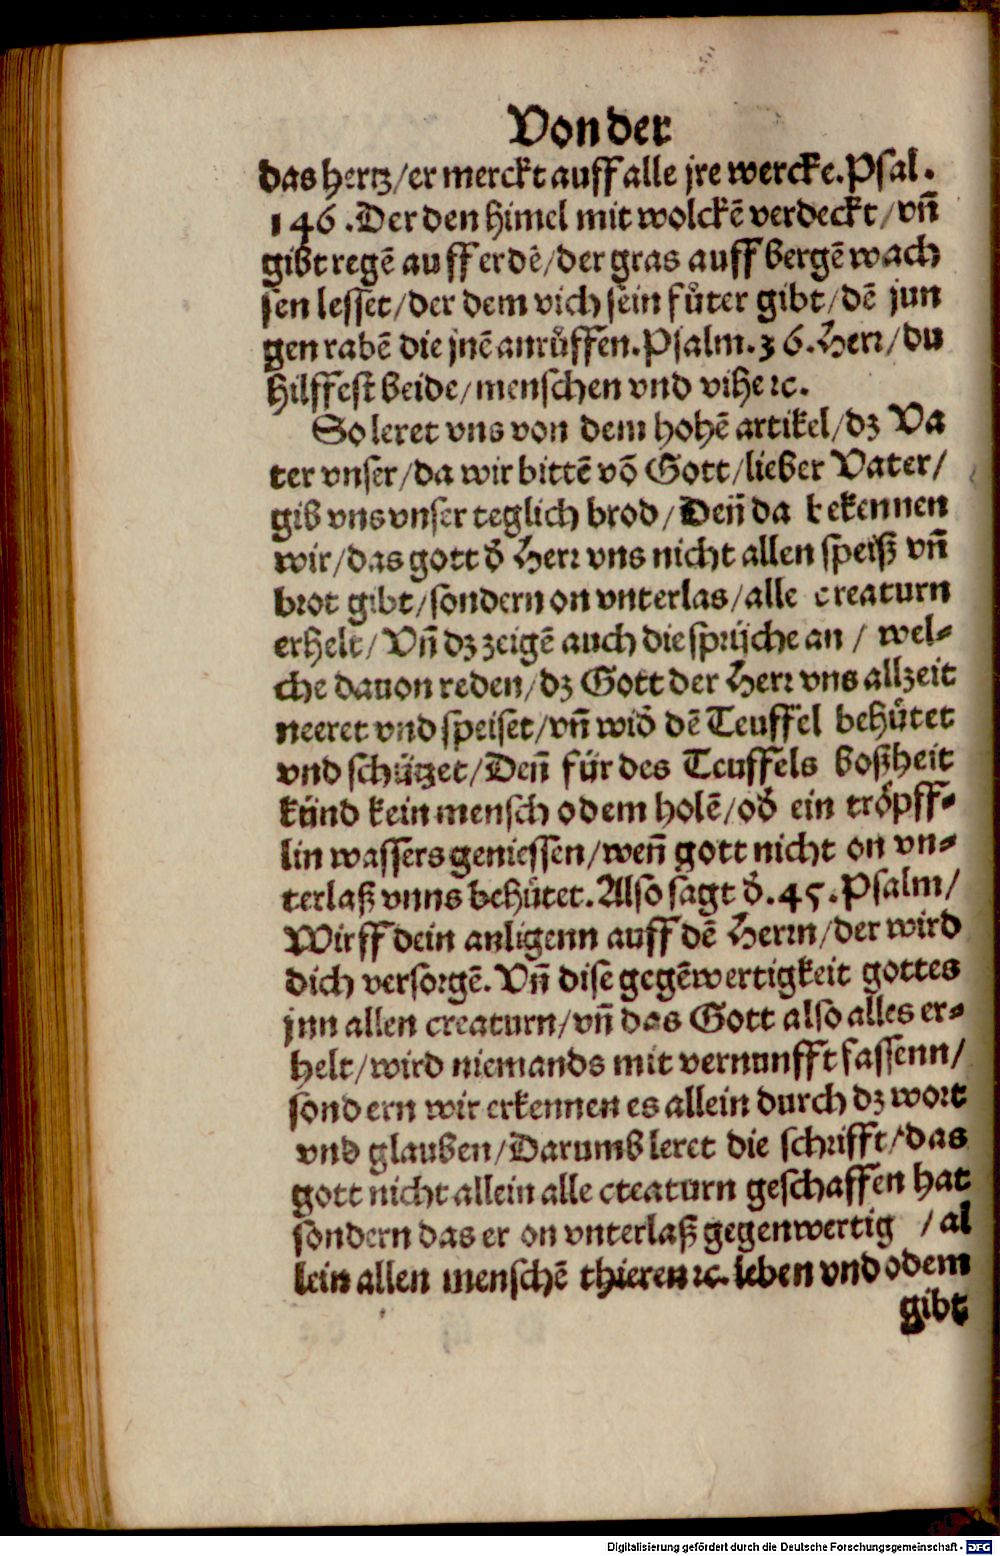 Von der
das hertz/er merckt auff alle jre wercke.Psal.
146.Der den himel mit wolckē verdeckt/vñ
gibt regē auff erdē/der gras auff bergē wach
sen lesset/der dem vich sein fůter gibt/dē jun
gen rabē die jnē anrůffen.Psalm.36.Herr/du
hilffest beide/menschen vnd vihe ⁊c.
So leret vns von dem hohē artikel/dz Va
ter vnser/da wir bittē võ Gott/lieber Vater/
gib vns vnser teglich brod/Deñ da bekennen
wir/das gott d̓ Herr vns nicht allen speiß vñ
brot gibt/sondern on vnterlas/alle creaturn
erhelt/Vñ dz zeigē auch die sprüche an/wel⸗
che dauon reden/dz Gott der Herr vns allzeit
neeret vnd speiset/vñ wid̓ dē Teuffel behütet
vnd schützet/Deñ für des Teuffels boßheit
künd kein mensch odem holē/od̓ ein tröpff⸗
lin wassers geniessen/weñ gott nicht on vn⸗
terlaß vnns behütet.Also sagt d̓.45.Psalm/
Wirff dein anligenn auff dē Herrn/der wird
dich versorgē.Vñ dise gegēwertigkeit gottes
jnn allen creaturn/vñ das Gott also alles er⸗
helt/wird niemands mit vernunfft fassenn/
sondern wir erkennen es allein durch dz wort
vnd glauben/Darumb leret die schrifft/das
gott nicht allein alle cteaturn geschaffen hat
sondern das er on vnterlaß gegenwertig /al
lein allen menschē thieren ⁊c.leben vnd odem
gibt
Digitalisierung gefördert durch die Deutsche Forschungsgemeinschaft - DFG